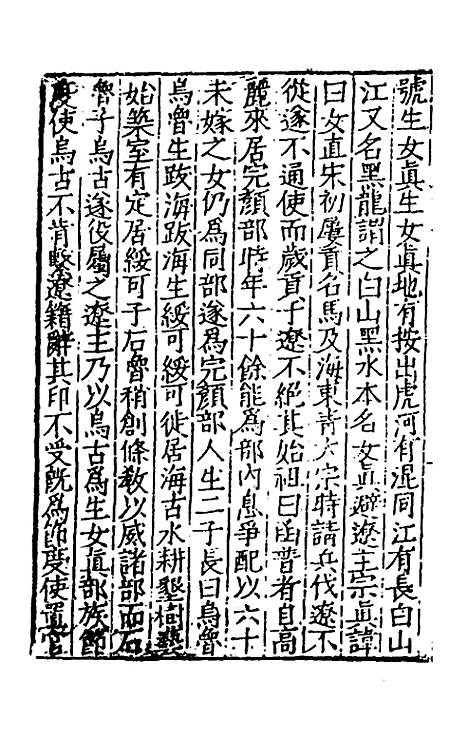 號生女真生女真地有按出虎河有混同江有長白山
江又名黑龍謂之白山黑水本名女真避遼主宗真諱
曰女直宋初屢貢名馬及海東青太宗時請兵伐遼不
從遂不通使而歲貢于遼不絕其始祖曰函普者自高
麗來居完顏部時年六十餘能為部內息爭配以六十
未嫁之女仍為同部遂為完顏部人生二子長曰烏魯
烏魯生跋海跋海生綏可綏可徙居海古水耕墾樹藝
始築室有定居綏可子石魯稍創條教以威諸部而石
魯子烏古遂役屬之遼主乃以烏古為生女真部族節
度使烏古不肯繫遼籍辭其印不受既為節度使置官